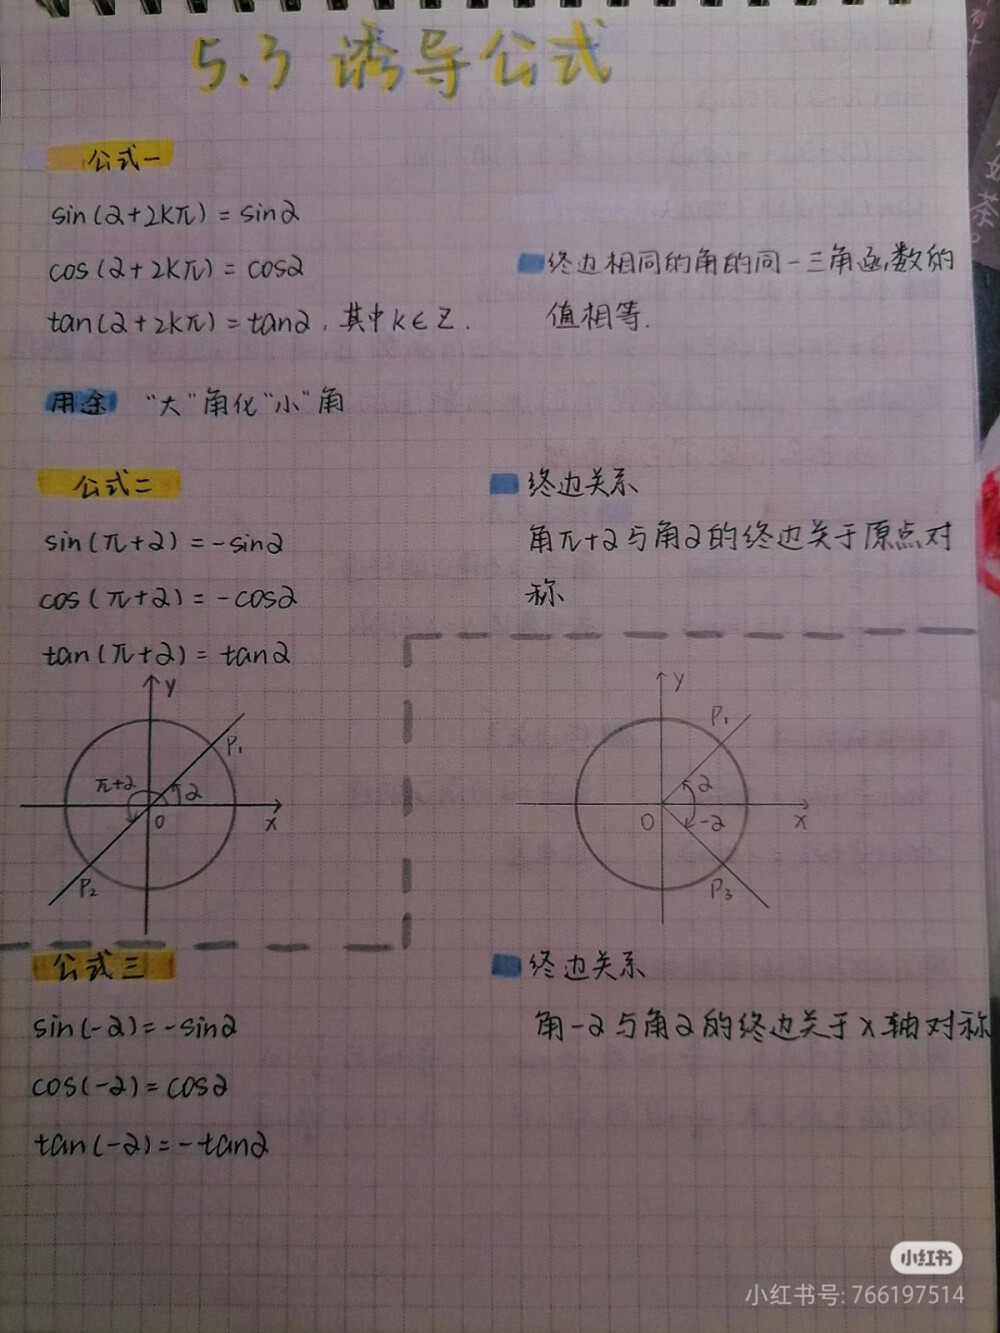 5.3 诱导公式
公式一
sin(α+2kπ)=sinα
cos(α+2kπ)=cosα
tan(α+2kπ)=tanα,其中k∈Z.
终边相同的角的同一三角函数的
值相等.
用途 "大"角化"小"角
公式二
sin(π+α)=-sinα
cos(π+α)=-cosα
tan(π+α)=tanα
终边关系
角π+α与角α的终边关于原点对
称
y
P₁
π+α
α
O
x
P₂
y
P₁
α
O
-α
x
P₃
公式三
sin(-α)=-sinα
cos(-α)=cosα
tan(-α)=-tanα
终边关系
角-α与角α的终边关于x轴对称
小红书
小红书号: 766197514